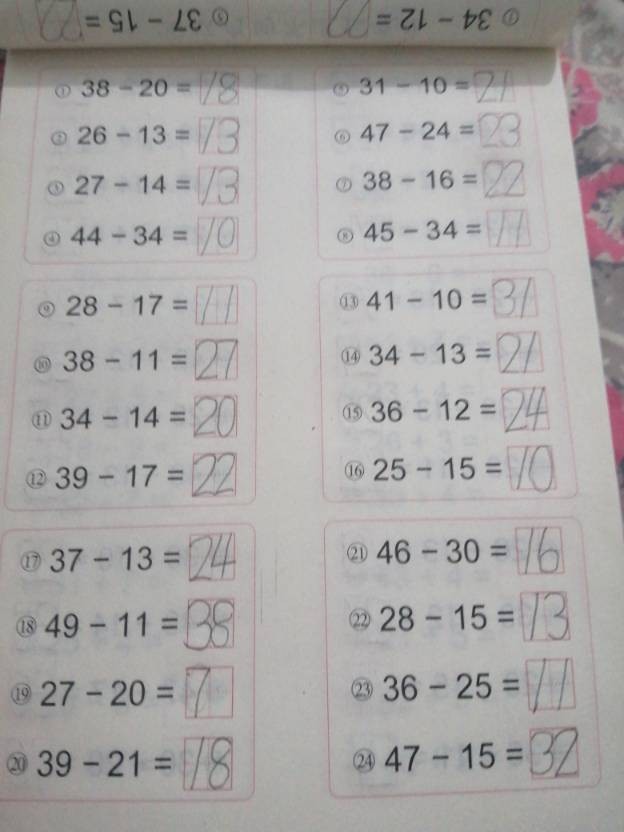 ⑤ 37 - 15 = 22
① 34 - 12 = 22
① 38 - 20 = 18
② 26 - 13 = 13
③ 27 - 14 = 13
④ 44 - 34 = 10
⑤ 31 - 10 = 21
⑥ 47 - 24 = 23
⑦ 38 - 16 = 22
⑧ 45 - 34 = 11
⑨ 28 - 17 = 11
⑩ 38 - 11 = 27
⑪ 34 - 14 = 20
⑫ 39 - 17 = 22
⑬ 41 - 10 = 31
⑭ 34 - 13 = 21
⑮ 36 - 12 = 24
⑯ 25 - 15 = 10
⑰ 37 - 13 = 24
⑱ 49 - 11 = 38
⑲ 27 - 20 = 7
⑳ 39 - 21 = 18
㉑ 46 - 30 = 16
㉒ 28 - 15 = 13
㉓ 36 - 25 = 11
㉔ 47 - 15 = 32